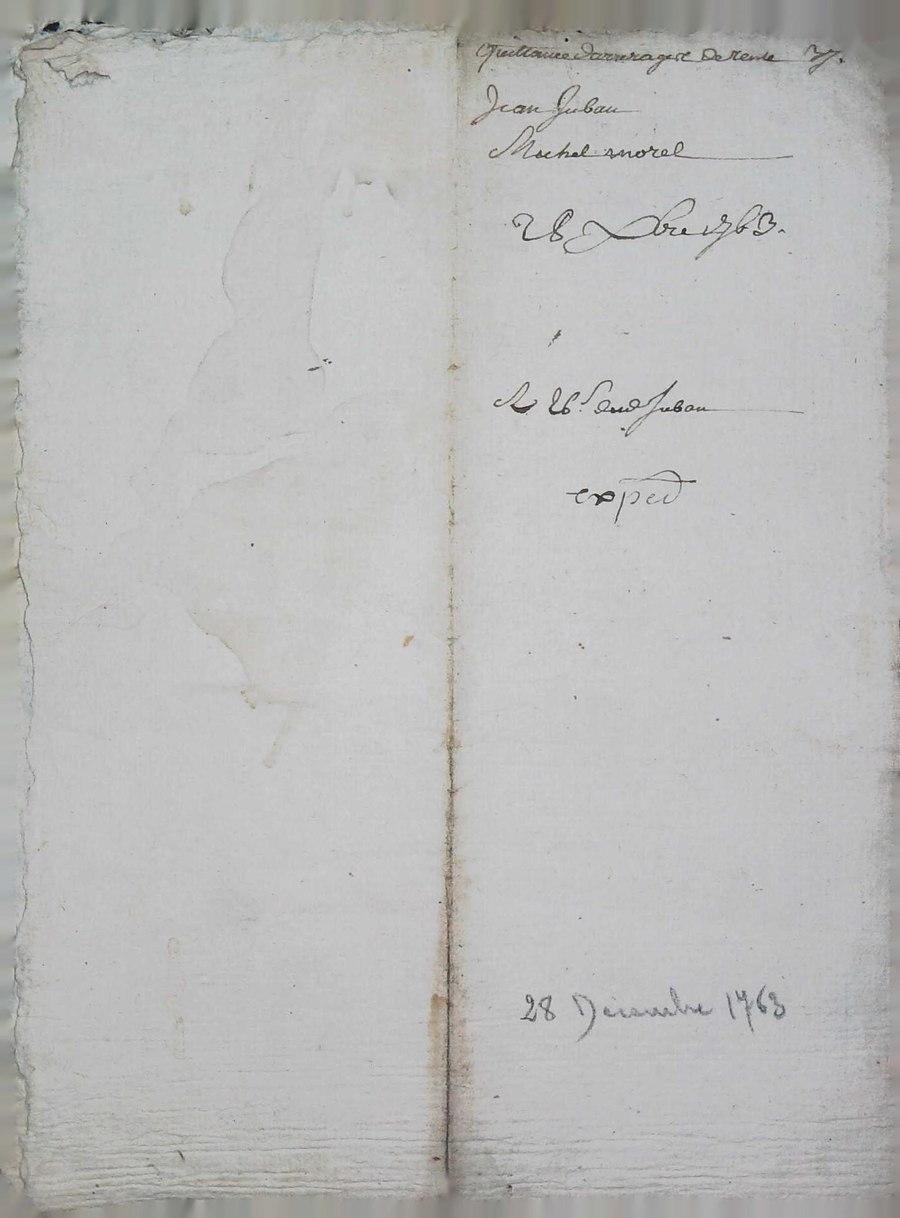 Quittance darrerages de rente
Jean Juban
Michel morel
28 Xbre 1763.
R 26.s dud Juban
exped
28 Décembre 1763